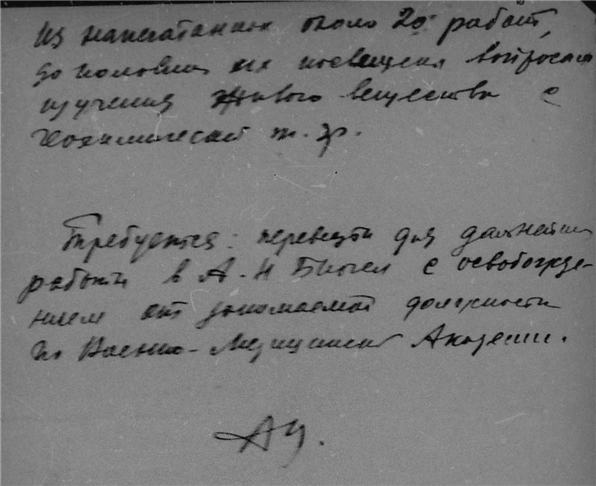 Из напечатанных около 20 работ,
до половины их посвящена вопросам
изучения живого вещества с
геохимической т. зр.
Требуется: перевести для дальнейшей
работы в А. Н Биогел с освобожде-
нием от занимаемой должности
по Военно-Медицинской Академии.